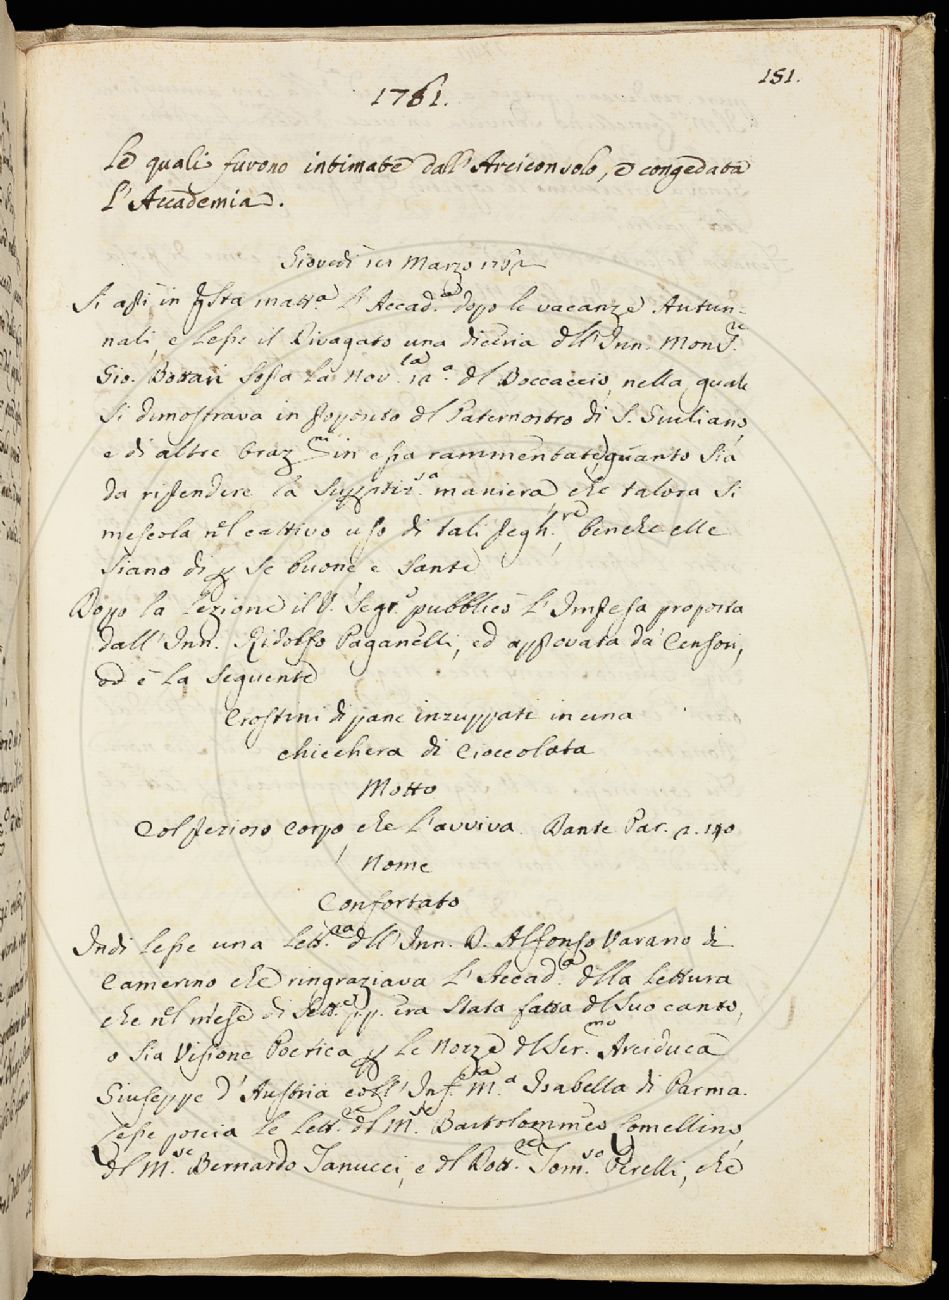 151.
1761.
Le quali furono intimate dall'Arciconsolo, e congedata
l'Accademia.
Giovedì Marzo
Si adi in qsta matta. l'Accad.a dopo le vacanze Autun=
nali, e lesse il Divagato una diceria dell'Inn. Mons.re
Gio. Bottari sopra la Nov.la 12.a del Boccaccio, nella quale
si dimostrava in proposito del Paternostro di S. Giuliano,
e di altre Oraz.ni in essa rammentate, quanto sia
da riprendere la superstiz.sa maniera, che talora si
mescola nel cattivo uso di tali pregh.re, benche elle
siano di p se buone e sante
Dopo la Lezione il V. Segr.o pubblicò l'Impresa proposta
dall'Inn. Ridolfo Paganelli, ed approvata da' Censori,
ed è la seguente
Crostini di pane inzuppati in una
chicchera di Cioccolata
Motto
Col prezioso corpo, che l'avviva. Dante Par. a. 140
Nome
Confortato
Indi lesse una Lett.ra dell'Inn. D. Alfonso Varano di
Camerino che ringraziava l'Accad.a della lettura
che nel mese di Sett.e p.p. era stata fatta del suo canto,
o sia Visione Poetica p le Nozze del Ser.mo Arciduca
Giuseppe d'Austria coll'Inf.ta M.a Isabella di Parma.
Lesse poscia le Lett.re del M.se Bartolommeo Lomellino,
del M.se Bernardo Tanucci, e del Dott.re Tom.so Perelli, che